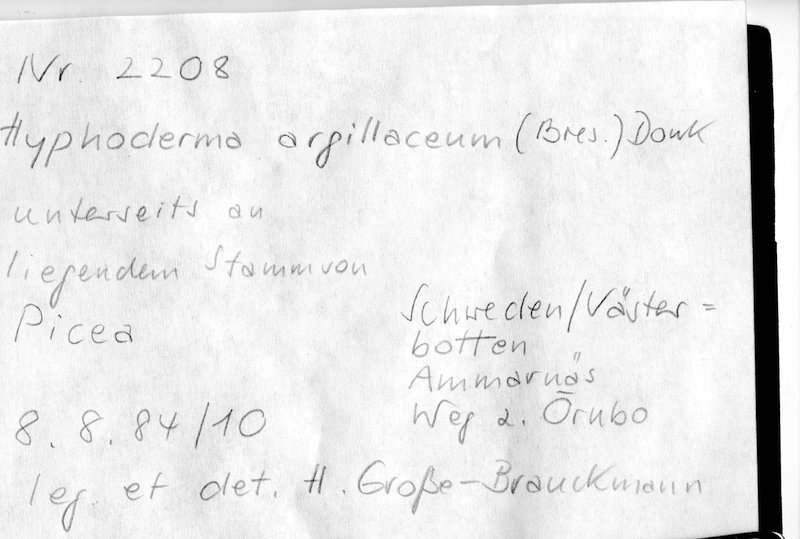 Nr. 2208
Hyphoderma argillaceum (Bres.) Donk
unterseits an
liegendem Stamm von
Picea
Schweden/Väster=
botten
Ammarnäs
Weg z. Örnbo
8. 8. 84/10
leg. et det. H. Große-Brauckmann